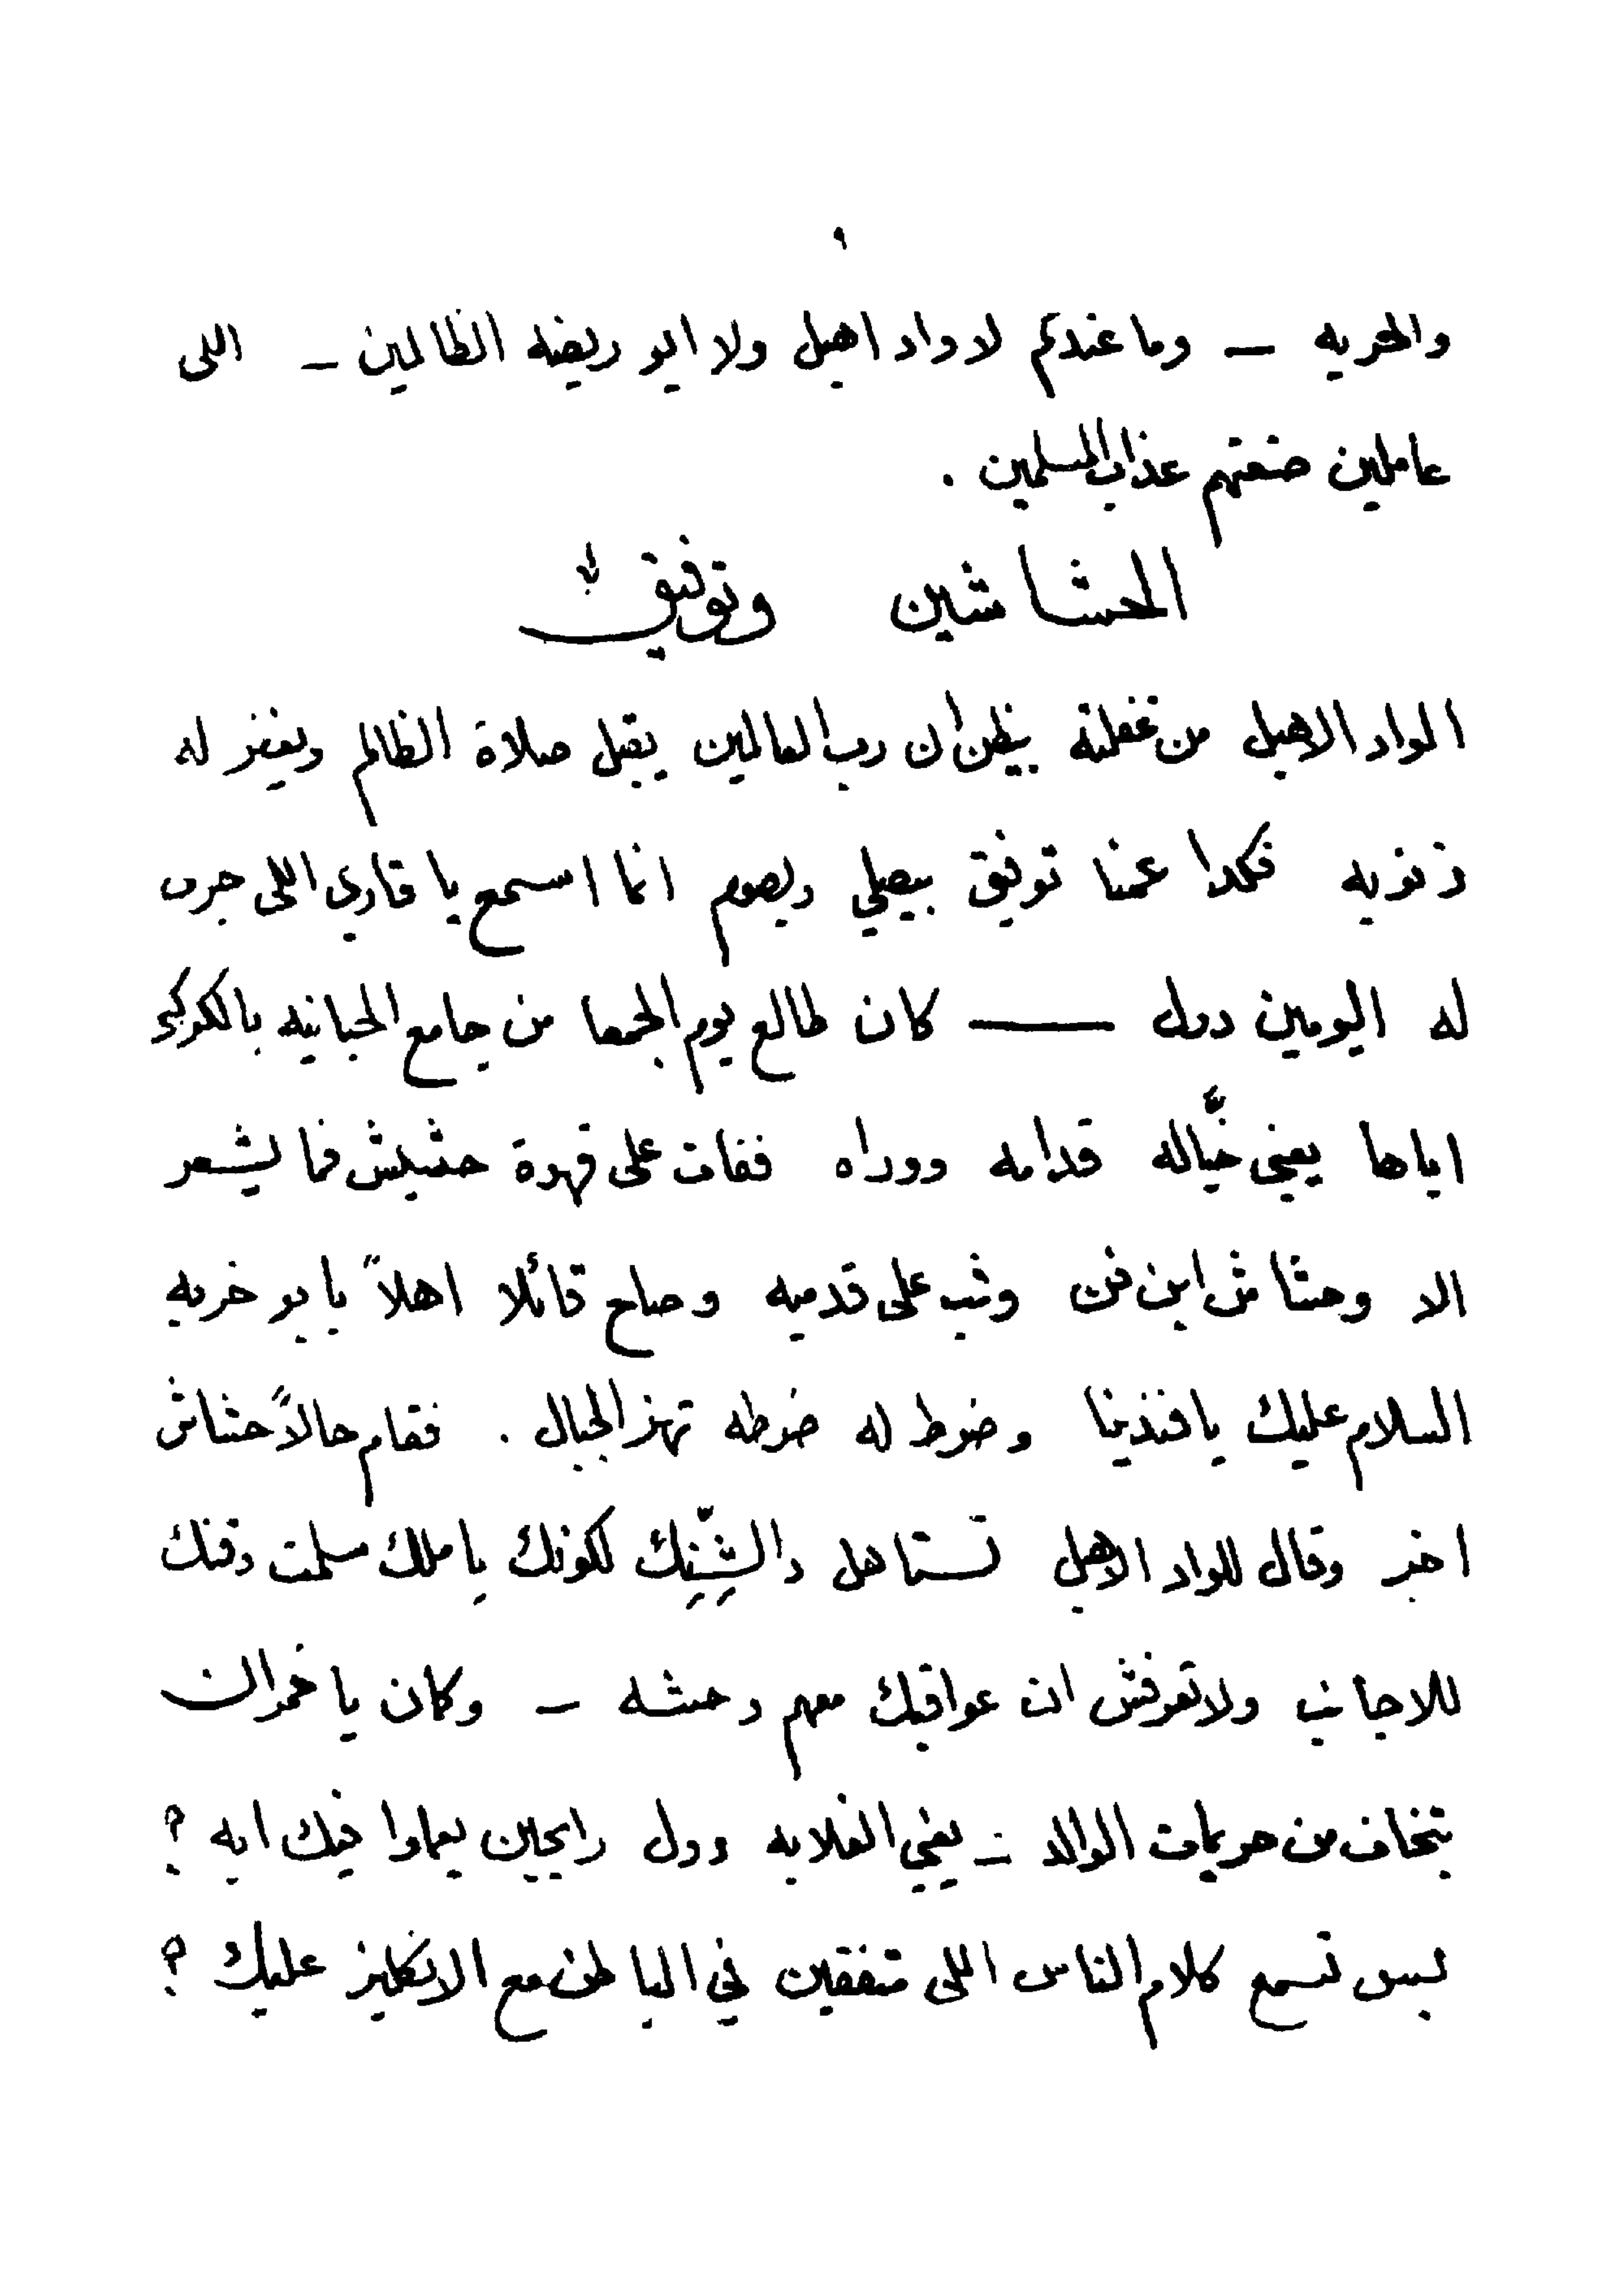 ٩
والحريه ـ وما عندهم لا واد اهبل ولا ابو ريضه الظالمين ـ اللى
عاملين صنعتهم عذاب المسلمين .
الحشاشين وتوفيق
الواد الاهبل من غفلته بيظن ان رب العالمين يقبل صلاة الظالم ويغفر له
ذنوبه فكدا عمنا توفيق بيصلي ويصوم انما اسمع يا قاري اللى جرى
له اليومين دول ــــ كان طالع يوم الجمعا من جامع الحبانيه بالكوكبه
اياها يعني خيَّاله قدامه ووراه ففات على قهوة حشيش فما يشعر
الا وحشاش ابن فن وثب على قدميه وصاح قائلا اهلاً يا بو خربه
السلام عليك يا فندينا وضرط له ضرطه تهز الجبال . فقام حالاً حشاش
اخر وقال للواد الاهبل تستاهل دا الشِّنِك لكونك يا ملك سلمت دقنك
للاجانب ولا تعرفش ان عواقبك معهم وحشه ـ وكان يا خمران
بتخاف من حريمات الوالد ـ يعني الغلابه دول رايحين يعملوا فيك ايه ؟
ليس تسمع كلام الناس اللى متفقين في الباطن مع الانكليز عليك ؟